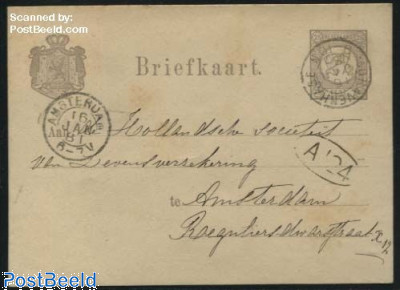 Scanned by
PostBeeld
Briefkaart.
AMSTERDAM
16
JAN
81
Hollandsche Societeit
van Levensverzekering
te Amsterdam
Reguliersdwarsstraat X. 12
A 124
PostBeeld